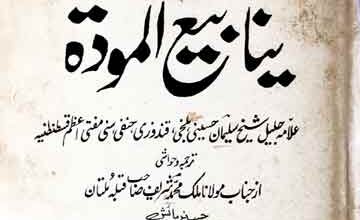 ینابیع المودة
علامہ جلیل شیخ سلیمان حسینی بلخی قندوزی حنفی سنی مفتی اعظم قسطنطنیہ
ترجمہ و حواشی
از جناب مولانا ملک محمد شریف صاحب قبلہ ملتان
حسب فرمائش